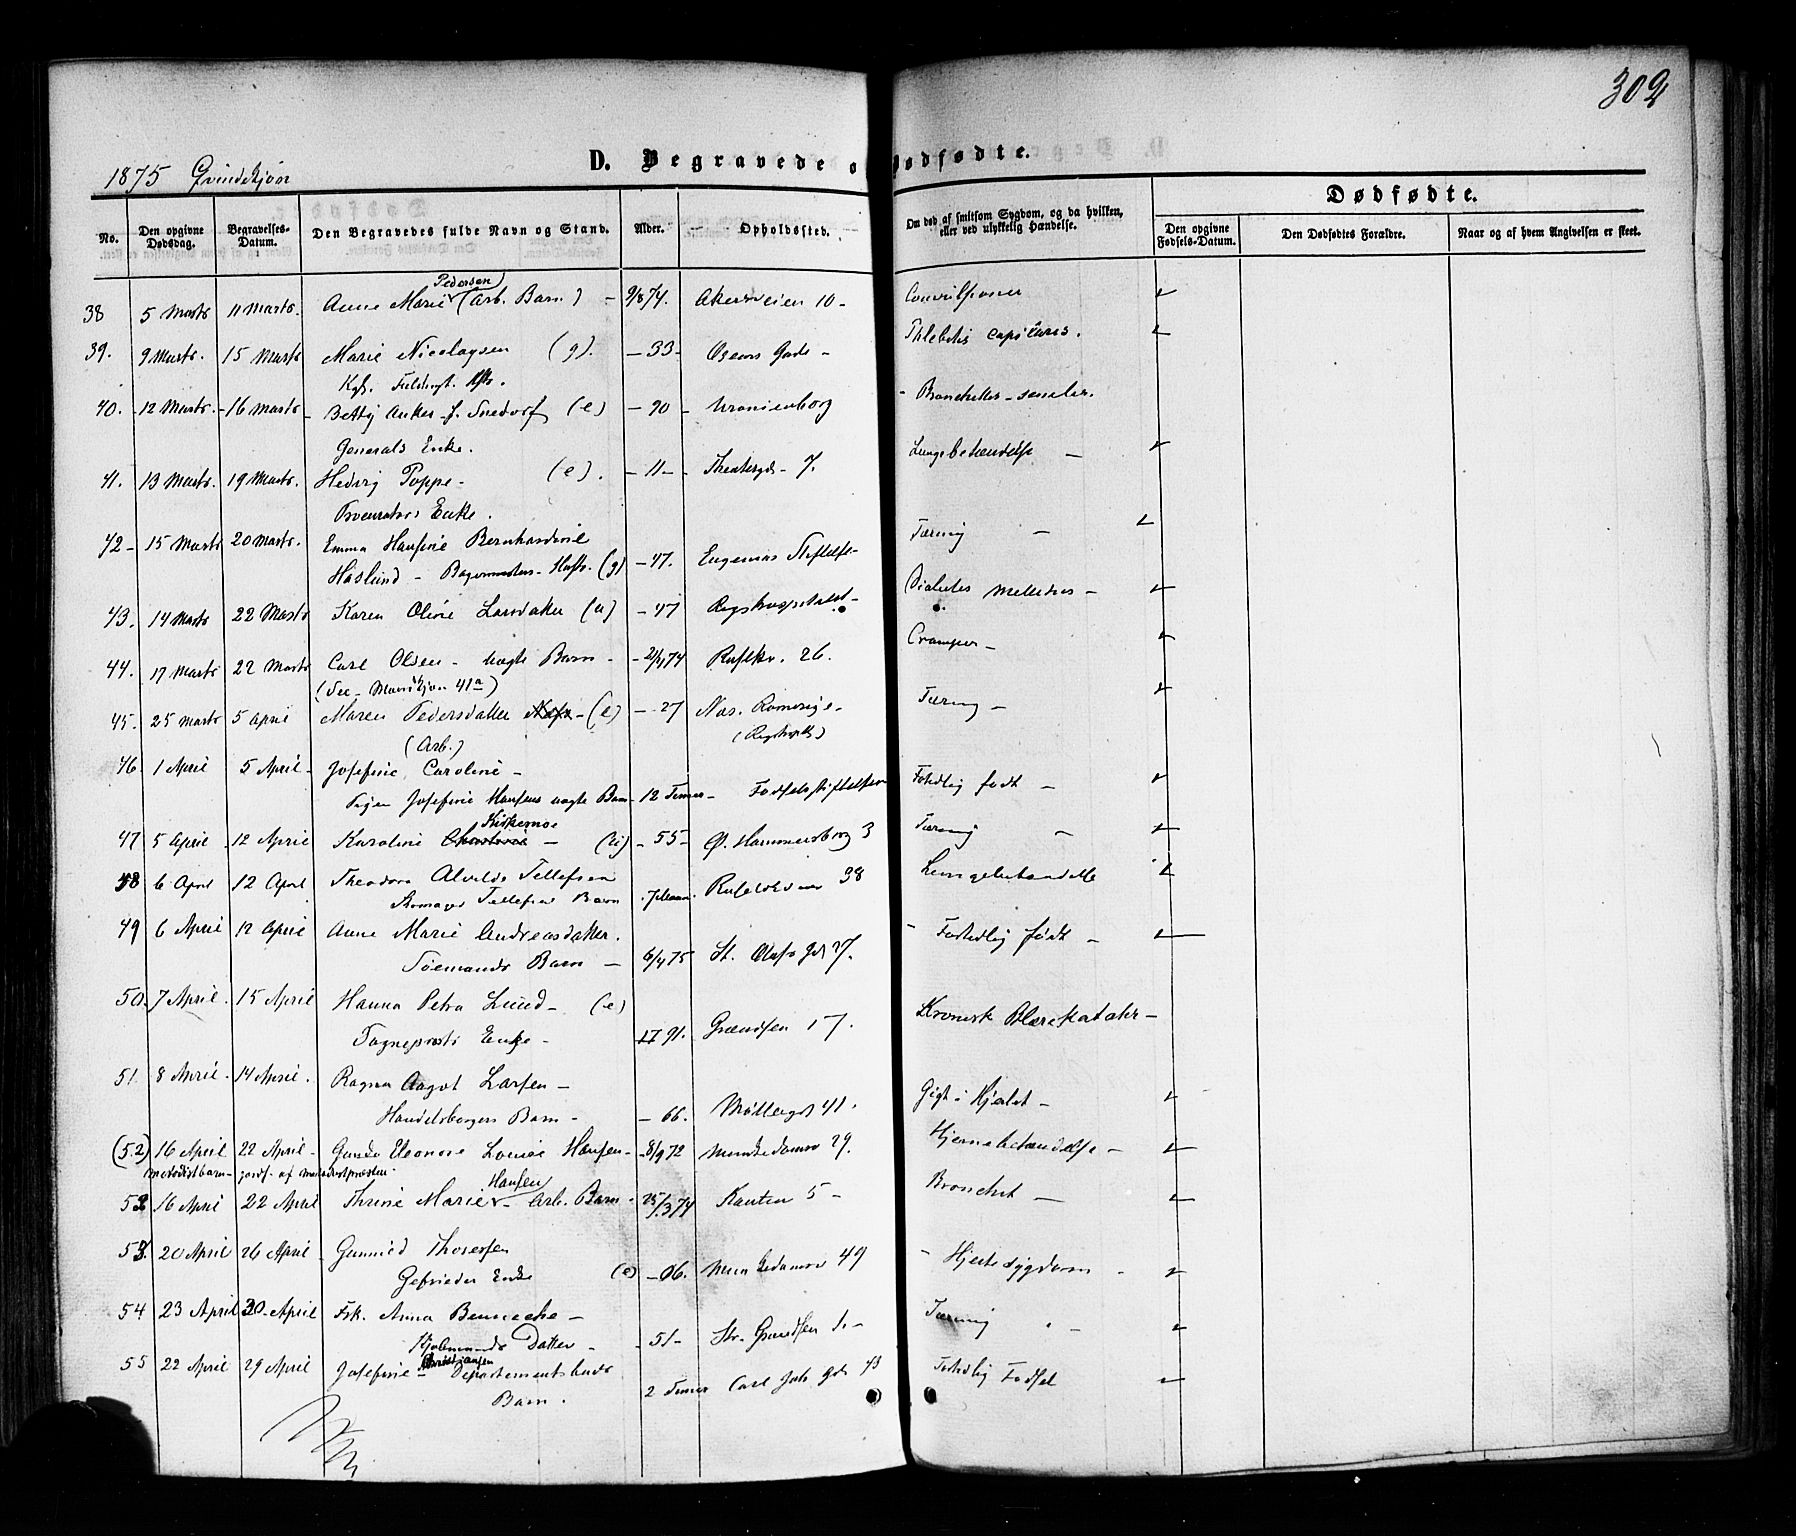 302
1875 Qvindekjøn
D. Begravede o dødfødte.
No. Den opgivne Dødsdag. Begravelses-Datum. Den Begravedes fulde Navn og Stand. Alder. Opholdssted. Om død af smitsom Sygdom, og da hvilken, eller ved ulykkelig Hændelse. Dødfødte.
Den opgivne Fødsels-Datum. Den Dødfødtes Forældre. Naar og af hvem Angivelsen er skeet.
Pedersen
38 5 Marts 11 Marts. Anne Marie (Arb. Barn) - 9/8 74. Akersveien 10 - Convulsioner
39. 9 Marts. 15 Marts Marie Nicolaysen (g). - 33 - Osears Gade - Phlebitis
Kgf.
40. 12 Marts. 16 Marts - Betty Anker f. Snedorf (e) - 90 - Uranienborg - Bronchitis senilis.
Generals Enke.
41. 13 Marts. 19 Marts. Hedvig Poppe - (e). - 11 - Theatergd - 7. Lungebetændelse -
Procurators Enke.
42 - 15 Marts 20 Marts. Emma Hansine Bernhardine Tæring -
Haslund - Bagermesters Hustr. (g) - 47. Eugenias Stiftelse -
43. 14 Marts 22 Marts Karen Oline Larsdatter (u) - 47 Rigshospitalet - Diabetes Mellitus -
44. 17 Marts 22 Marts Carl Olsen - uægte Barn - 2/11 74 Rufslkv. 26. Cramper -
(See - Mandkjøn 41a)
45. 25 Marts 5 April Maren Pedersdatter (e) - 27 Nas. Romerige - Tæring -
(Arb.) (Rigshosptl)
46. 1 April 5 April - Josefine Caroline -
Pigen Josefine Hansens uægte Barn - 12 Timer - Fødselsstiftelsen Fortidlig født -
Kirkemoe
47 5 April 12 April Karoline - (u) - 55 - Ø. Hammersborg 3 Tæring -
48 6 April 12 April Theodora Alvilde Tellefsen Lungebetændelse
Skomager Tellefsen Barn 7 Maan. Rufeløkveien 38
49 6 April 12 April Anne Marie Andreasdatter. - Fortidlig født -
Sømands Barn - 6/4 75 St. Olafs Gd 27.
50. 7 April. 15 April Hanna Petra Lund - (e) Kronisk Blærekatahr -
Sogneprests Enke - 91. Grændsen 17.
51. 8 April. 14 April. Ragna Aagot Larsen -
Handelsborgers Barn - - 66. Møllergd 41. Gigt i Hjertet -
(52) 16 April 22 April - Gunda Eleonore Louise Hansen - 8/9 72 Munkedamsv 29. Hjernebetændelse -
Methodistbarn - jordf. af Methodistpræsten.
Hansen
52 16 April 22 April Thrine Marie - Arb. Barn - 25/3 74 Kanten 5 - Bronchit -
53. 20 April 26 April - Gunnild Thoresen
Gefreider Enke (e) - 66. Munkedamsv 49 - Hjertesygdom -
54 23 April 30 April Frk. Anna Bennecke - Tæring -
Kjøbmands Datter - - 51 - Str. Grændsen 1. -
Christiansen
55 22 April 29 April Josefine - Departementsbuds
Barn. 2 Timer Carl Joh. Gd 43 Fortidlig Fødsel